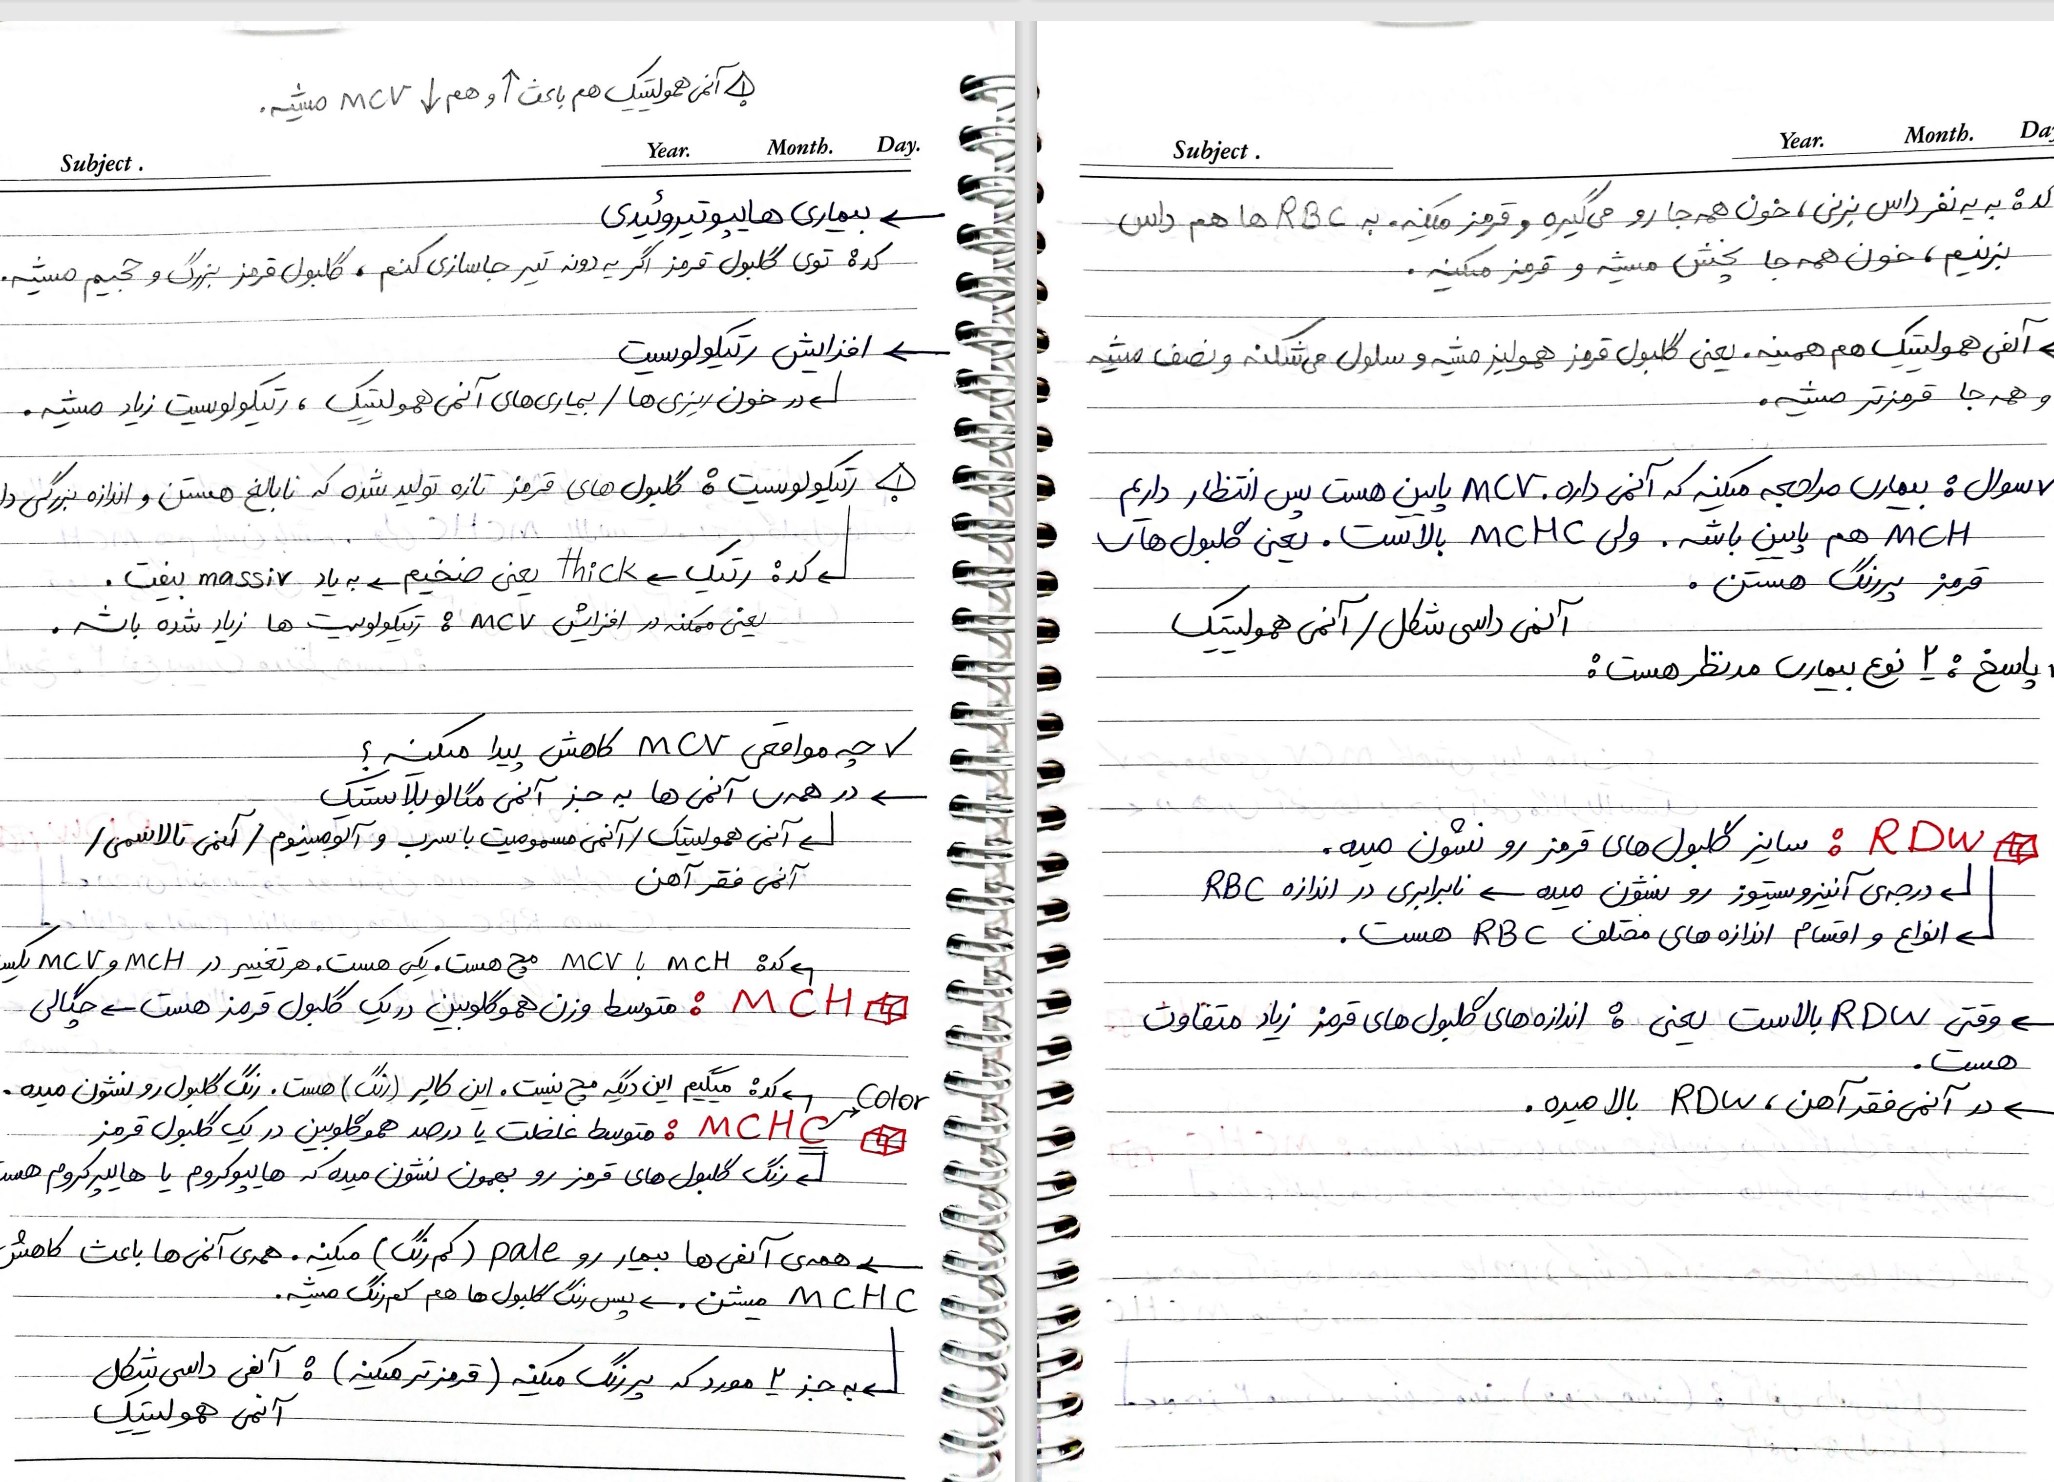 ⚠ آنمی همولیتیک هم باعث ↑ و هم ↓ MCV میشه.
Subject .
Year. Month. Day.
← بیماری هایپوتیروئیدی
کد: توی گلبول قرمز اگر یه دونه تیر جاسازی کنم، گلبول قرمز بزرگ و حجیم میشه.
← افزایش رتیکولوسیت
← در خون ریزی ها / بیماری های آنمی همولیتیک، رتیکولوسیت زیاد میشه.
⚠ رتیکولوسیت: گلبول های قرمز تازه تولید شده که نابالغ هستن و اندازه بزرگی
← کد: رتیک ← thick یعنی ضخیم ← به یاد massiv بیفت.
یعنی ممکنه در افزایش MCV: رتیکولوسیت ها زیاد شده باشه.
✓ چه مواقعی MCV کاهش پیدا میکنه؟
← در همه‌ی آنمی ها به جز آنمی مگالوبلاستیک
← آنمی همولیتیک / آنمی مسمومیت با سرب و آلومینیوم / آنمی تالاسمی /
آنمی فقر آهن
← کد: MCH با MCV مچ هست. یکی هست. هر تغییر در MCH و MCV
MCH: متوسط وزن هموگلوبین در یک گلبول قرمز هست ← چگالی
← کد: میگیم این دیگه مچ نیست. این کالر (رنگ) هست. رنگ گلبول رو نشون میده.
Color
MCHC: متوسط غلظت یا درصد هموگلوبین در یک گلبول قرمز
← رنگ گلبول های قرمز رو بهمون نشون میده که هایپوکروم یا هایپرکروم
← همه‌ی آنمی ها بیمار رو pale (کم رنگ) میکنه. همه‌ی آنمی ها باعث کاهش
MCHC میشن. ← پس رنگ گلبول ها هم کم رنگ میشه.
← به جز ۲ مورد که پررنگ میکنه (قرمزتر میکنه): آنمی داسی شکل
آنمی همولیتیک
Subject .
Year. Month. Day
کد: به یه نفر داس بزنی، خون همه جا رو می‌گیره و قرمز میکنه. به RBC ها هم داس
بزنیم، خون همه جا پخش میشه و قرمز میکنه.
← آنمی همولیتیک هم همینه. یعنی گلبول قرمز همولیز میشه و سلول می‌شکنه و نصف میشه
و همه جا قرمزتر میشه.
✓ سوال: بیماری مراجعه میکنه که آنمی داره. MCV پایین هست پس انتظار داریم
MCH هم پایین باشه. ولی MCHC بالاست. یعنی گلبول های
قرمز پررنگ هستن.
آنمی داسی شکل / آنمی همولیتیک
پاسخ: ۲ نوع بیماری مدنظر هست:
RDW: سایز گلبول های قرمز رو نشون میده.
← درجه‌ی آنیزوسیتوز رو نشون میده ← نابرابری در اندازه RBC
← انواع و اقسام اندازه های مختلف RBC هست.
← وقتی RDW بالاست یعنی: اندازه های گلبول های قرمز زیاد متفاوت
هست.
← در آنمی فقر آهن، RDW بالا میده.